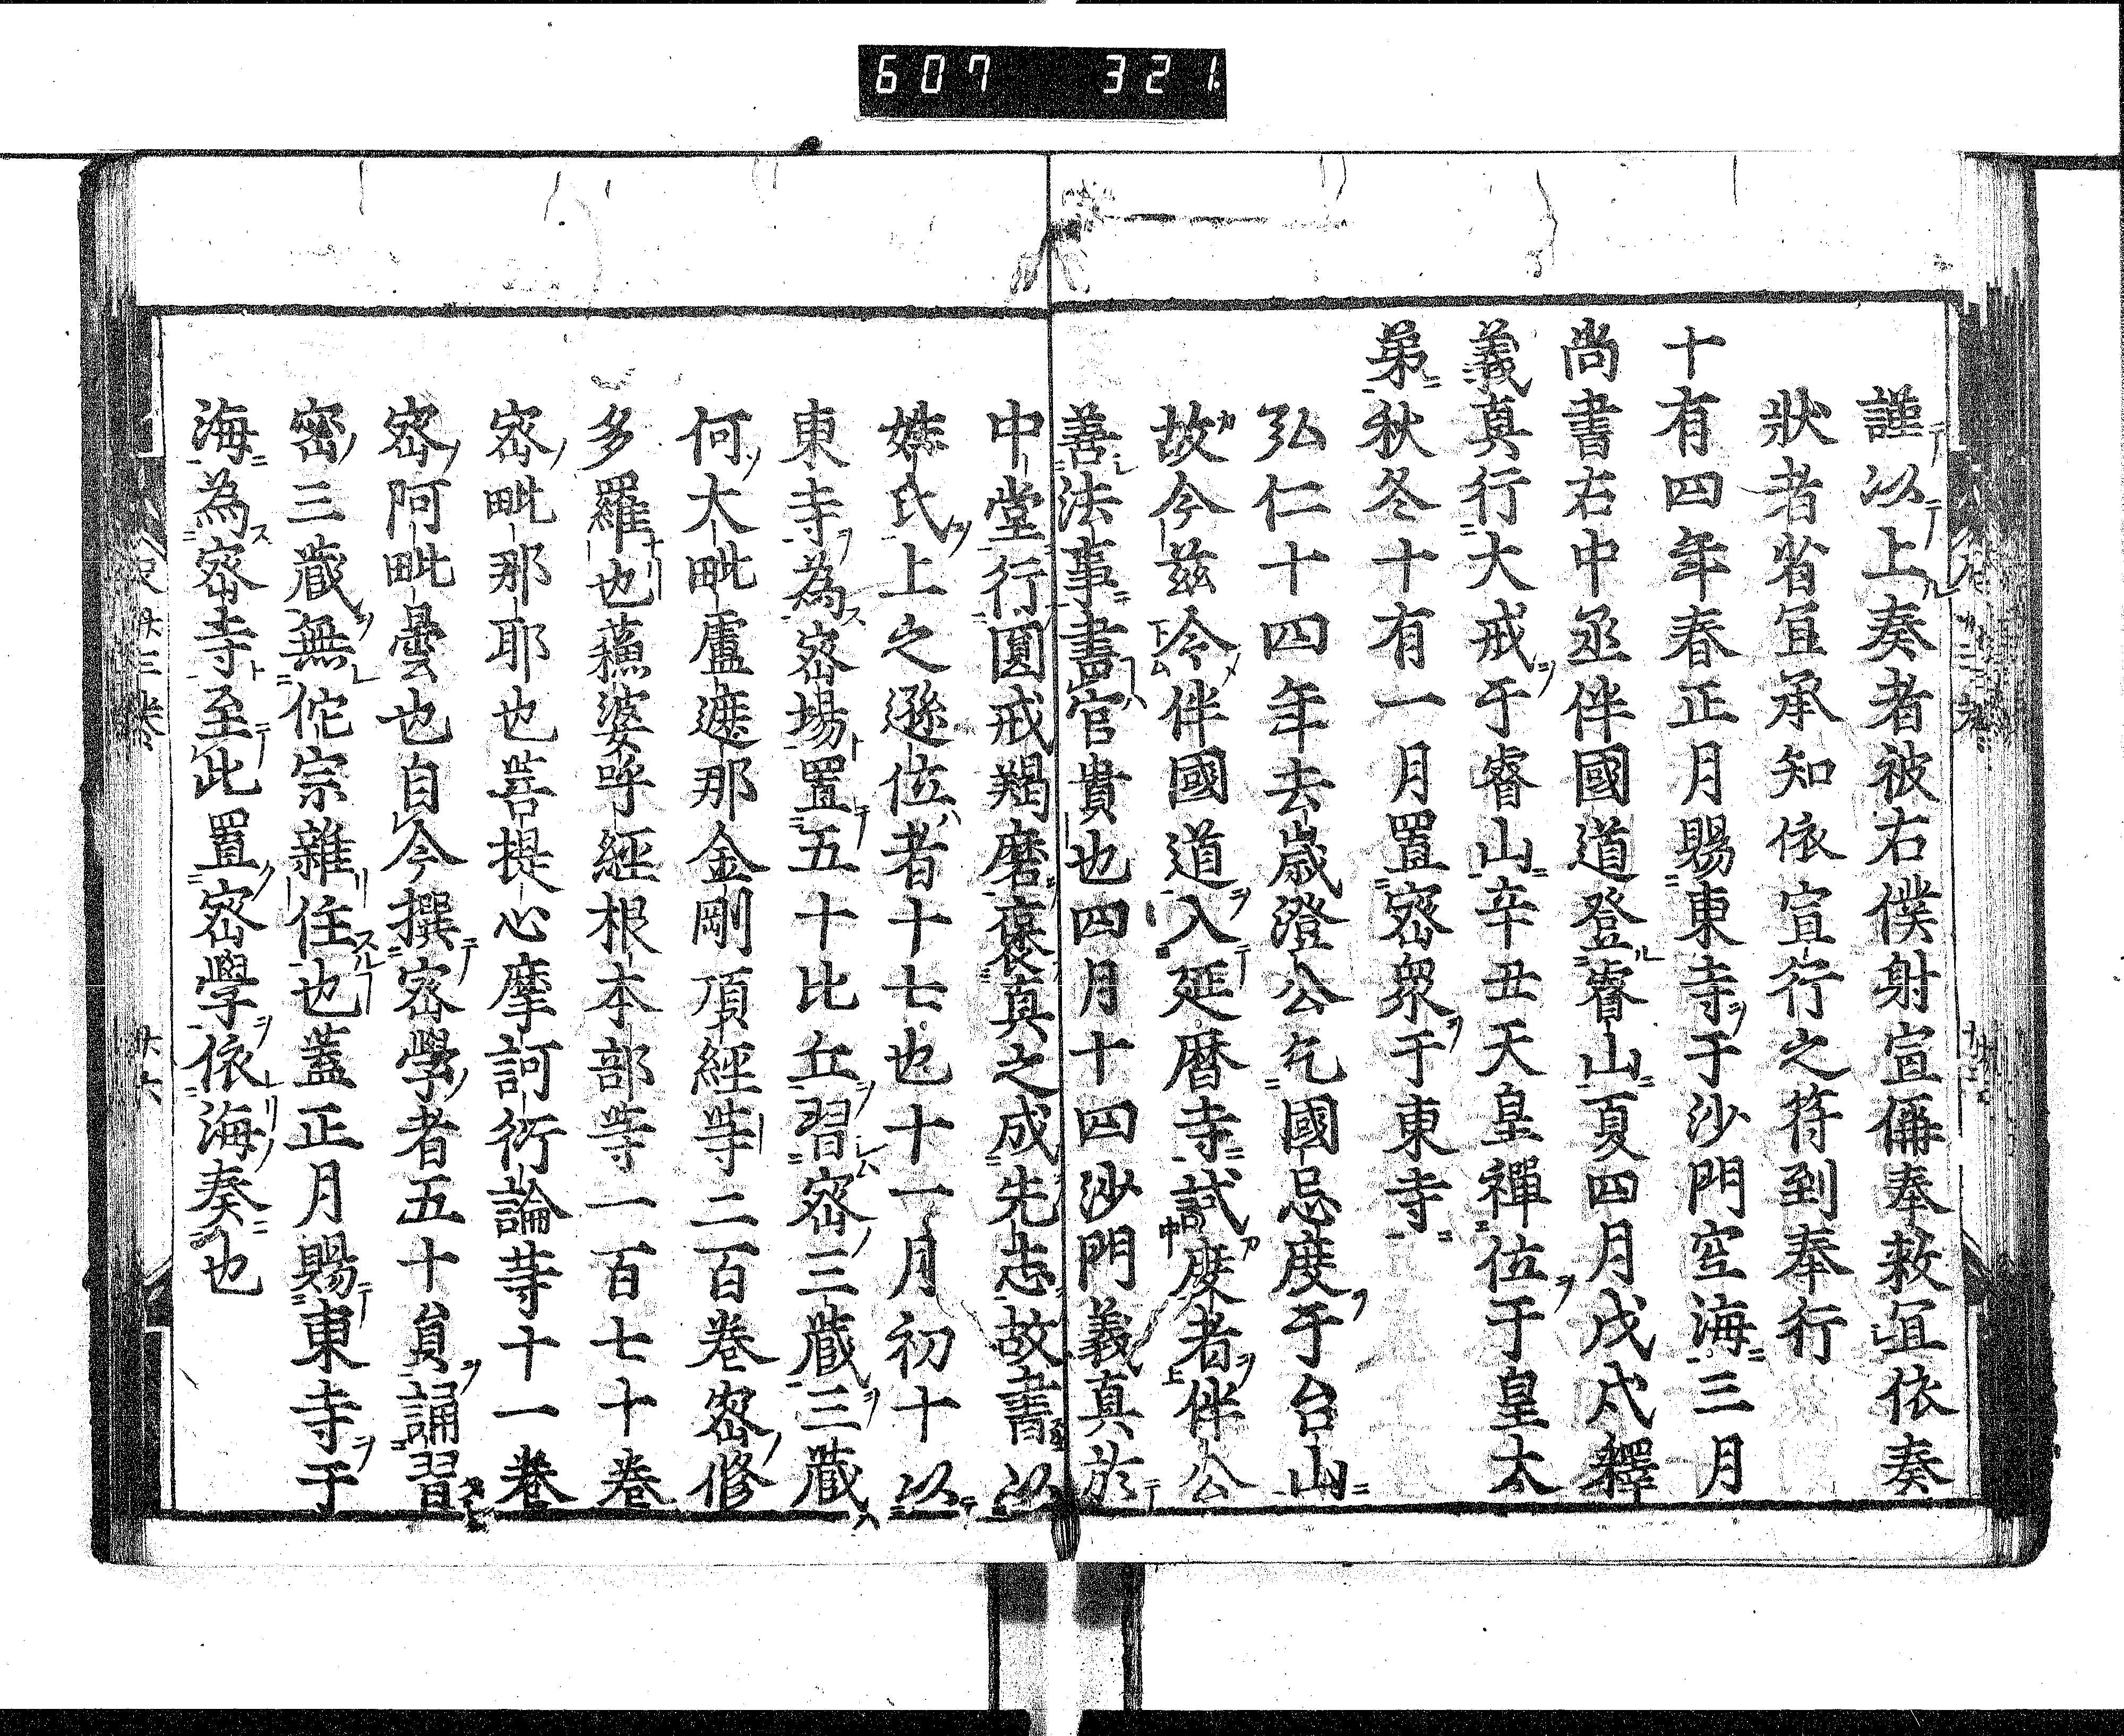 607 321
謹以上奏者被右僕射宣偁奉敕宜依奏
狀者省宜承知依宣行之符到奉行
十有四年春正月賜東寺于沙門空海三月
尚書右中丞伴國道登睿山夏四月戊戌釋
義真行大戒于睿山辛丑天皇禪位于皇太
弟秋冬十有一月置密衆于東寺
弘仁十四年去歲澄公乞國忌度于台山
故今茲令伴國道入延曆寺試度者伴公
善法事書官貴也四月十四沙門義真於
中堂行圓戒羯磨褒真之成先志故書以
姓氏上之遜位者十七也十一月初十以
東寺為密場置五十比丘習密三藏三藏
何大毗盧遮那金剛頂經等二百卷密修
多羅也蘓婆呼經根本部等一百七十卷
密毗那耶也菩提心摩訶衍論等十一卷
密阿毗曇也自今撰密學者五十員誦習
密三藏無佗宗雜住也蓋正月賜東寺于
海為密寺至此置密學依海奏也